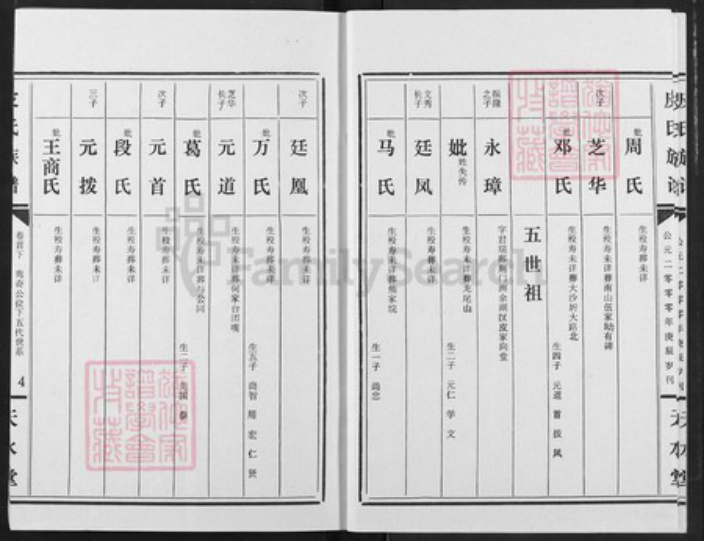 公元二零零零年庚辰岁刊
天水堂
妣
周氏
生殁寿葬未详
次子
芝华
生殁寿葬未详葬南山伍家坳有碑
妣
邓氏
生殁寿葬未详葬大沙圻大路北
生四子 元道 首 拨 凤
五世祖
振隆之子
永璋
妣
姓失传
生殁寿葬未详葬龙尾山
生二子 元仁 学 文
文秀长子
廷凤
生殁寿葬未详
妣
马氏
生殁寿未详葬熊家院
生一子 尚忠
次子
廷凰
生殁寿葬未详
妣
万氏
生殁寿葬未详
生五子 尚智 周 宏 仁 贤
芝华长子
元道
生殁寿未详葬何家台团嘴
妣
葛氏
生殁寿未详葬与公同
次子
元首
生殁寿葬未详
妣
段氏
生殁寿葬未详
三子
元拨
生殁寿葬未详
妣
王商氏
生殁寿葬未详
氏族谱
卷首下
公位下五代世系
4
天水堂
FamilySearch